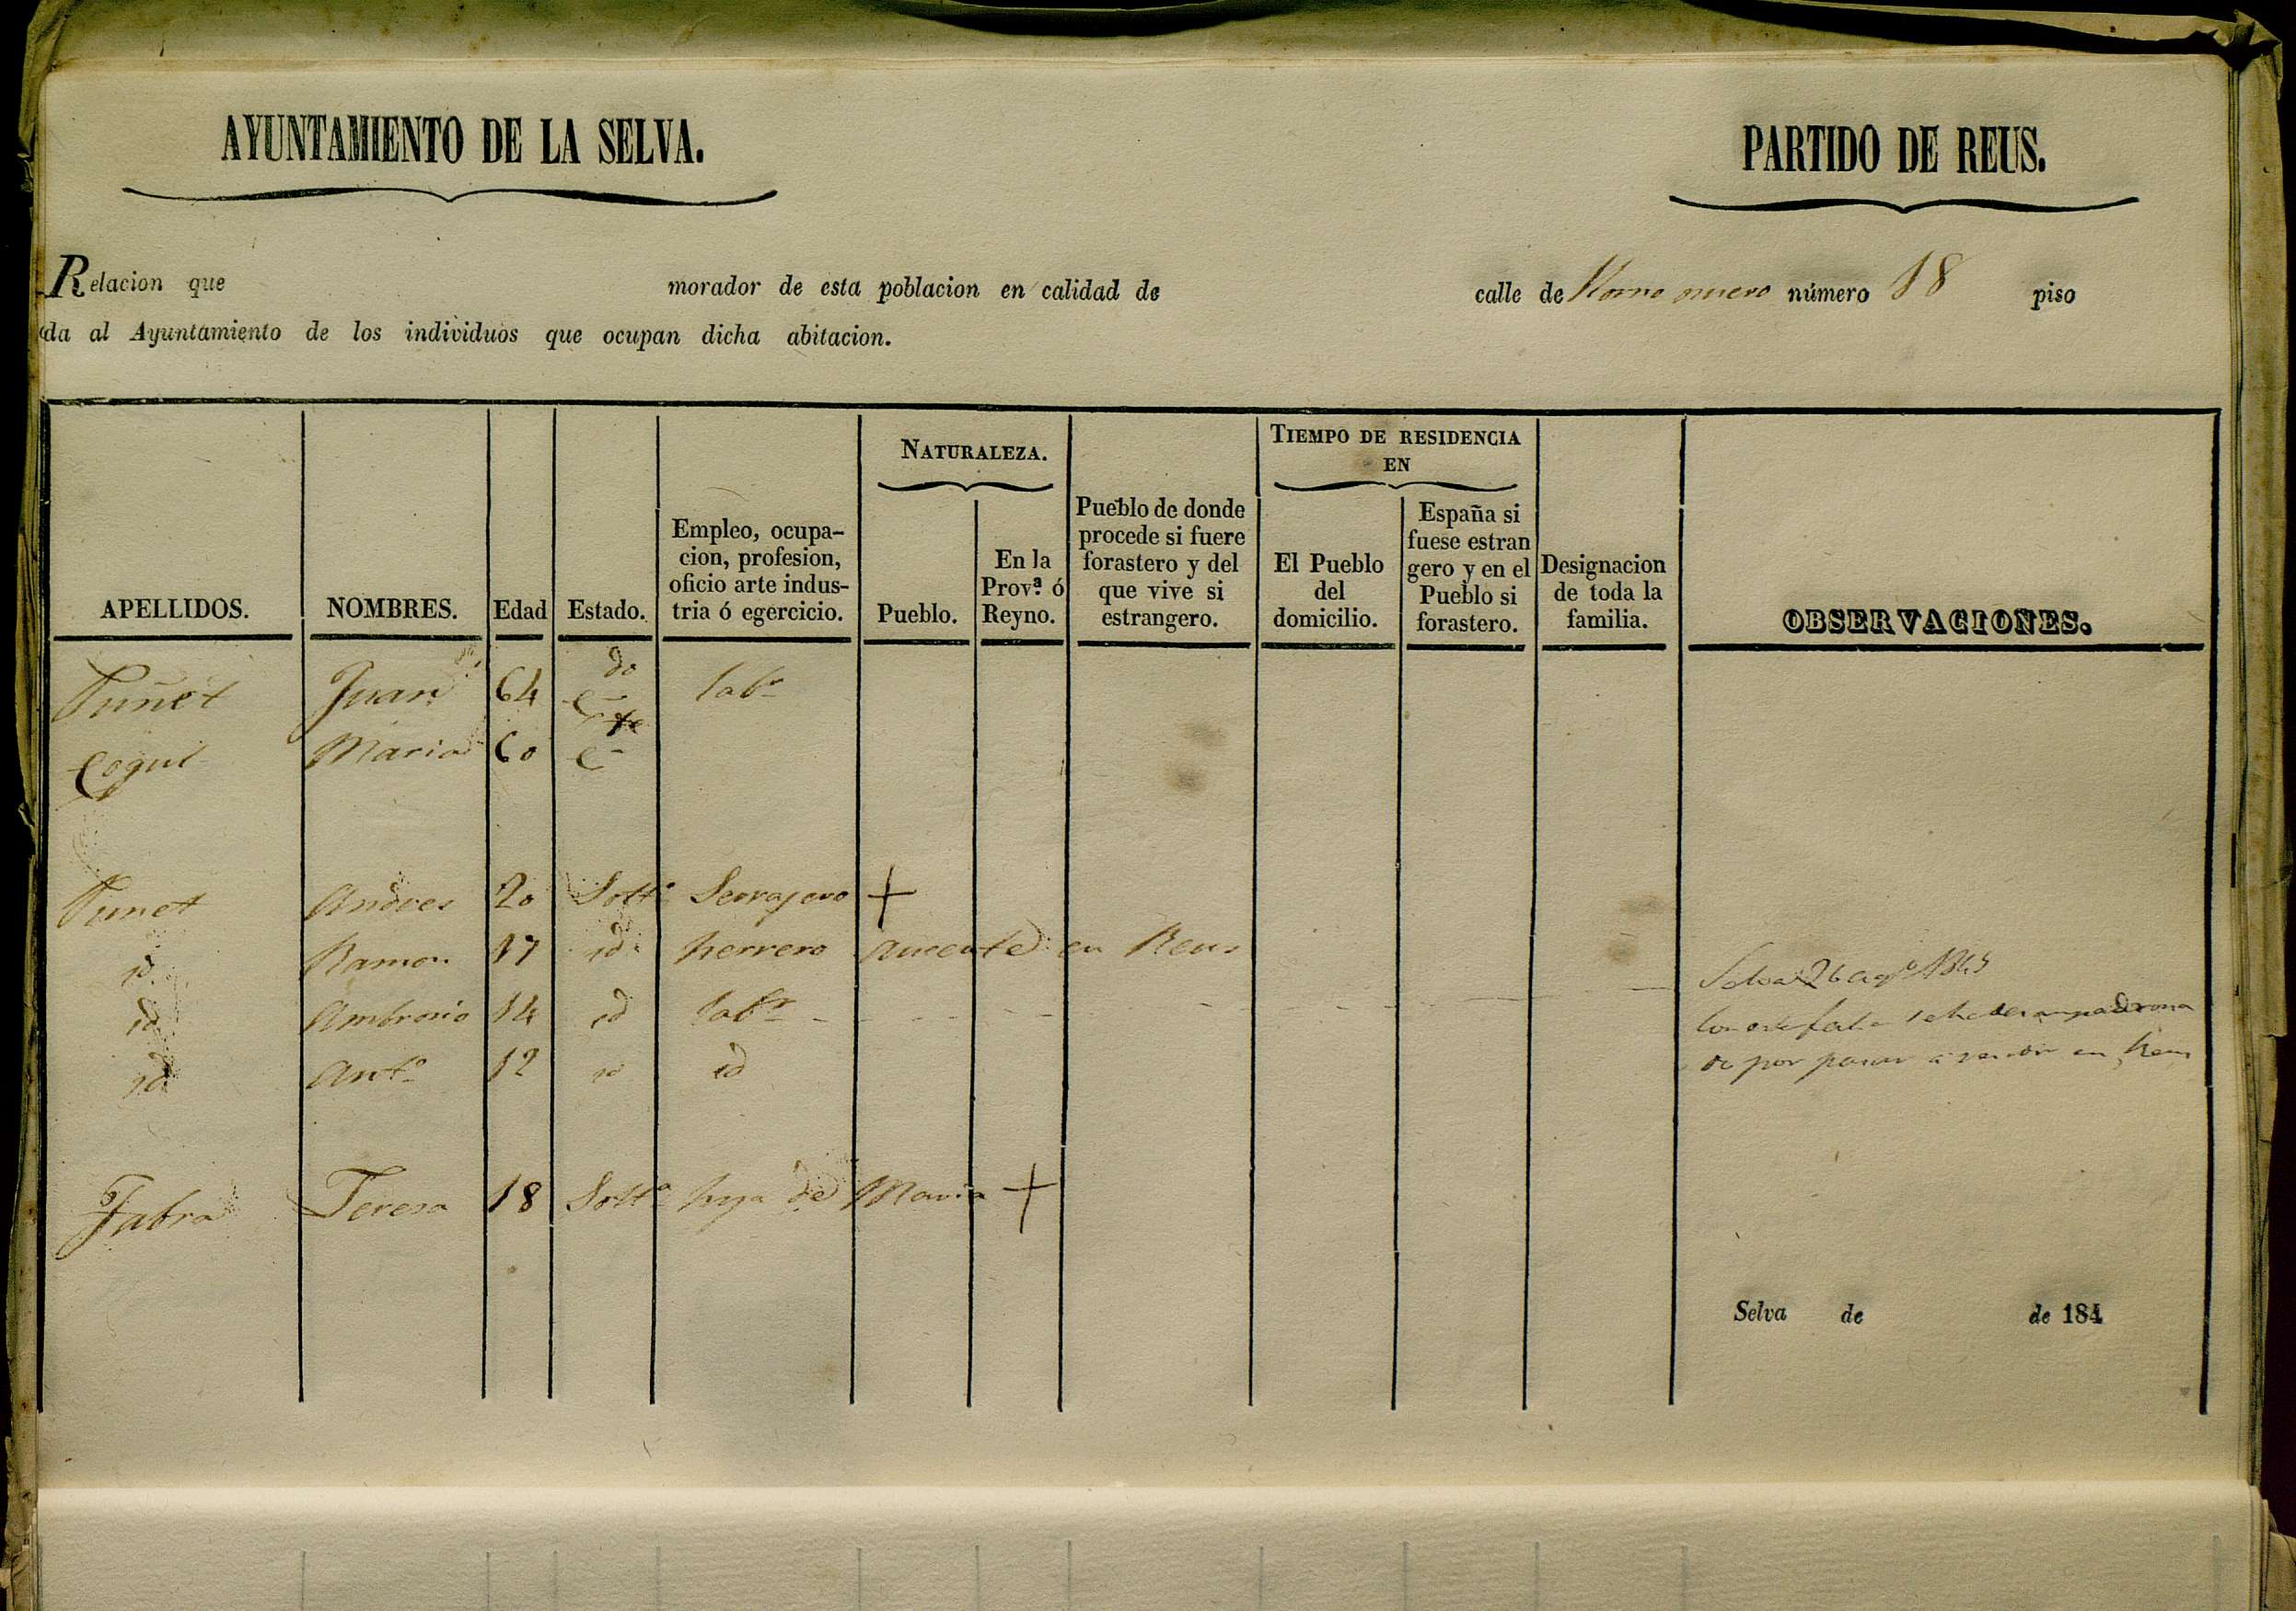 AYUNTAMIENTO DE LA SELVA.
PARTIDO DE REUS.
Relacion que morador de esta poblacion en calidad de calle de Horno nuevo número 18 piso
da al Ayuntamiento de los individuos que ocupan dicha abitacion.
APELLIDOS.
NOMBRES.
Edad
Estado.
Empleo, ocupa-
cion, profesion,
oficio arte indus-
tria ó egercicio.
NATURALEZA.
Pueblo.
En la
Prov.ª ó
Reyno.
Pueblo de donde
procede si fuere
forastero y del
que vive si
estrangero.
TIEMPO DE RESIDENCIA
EN
El Pueblo
del
domicilio.
España si
fuese estran
gero y en el
Pueblo si
forastero.
Designacion
de toda la
familia.
OBSERVACIONES.
Puñet Juan 64 C.do labr
Cogul Maria 60 C
Punet Andres 20 Soltº Serrajero +
id Ramon 17 id herrero aucente en Reus
id Ambrosio 14 id labr
id Antº 12 id id
Selva 26 agto
con esta fecha se ha desempadrona
do por pasar a en Reus
Fabra Teresa 18 Soltª hija de Maria +
Selva de de 184